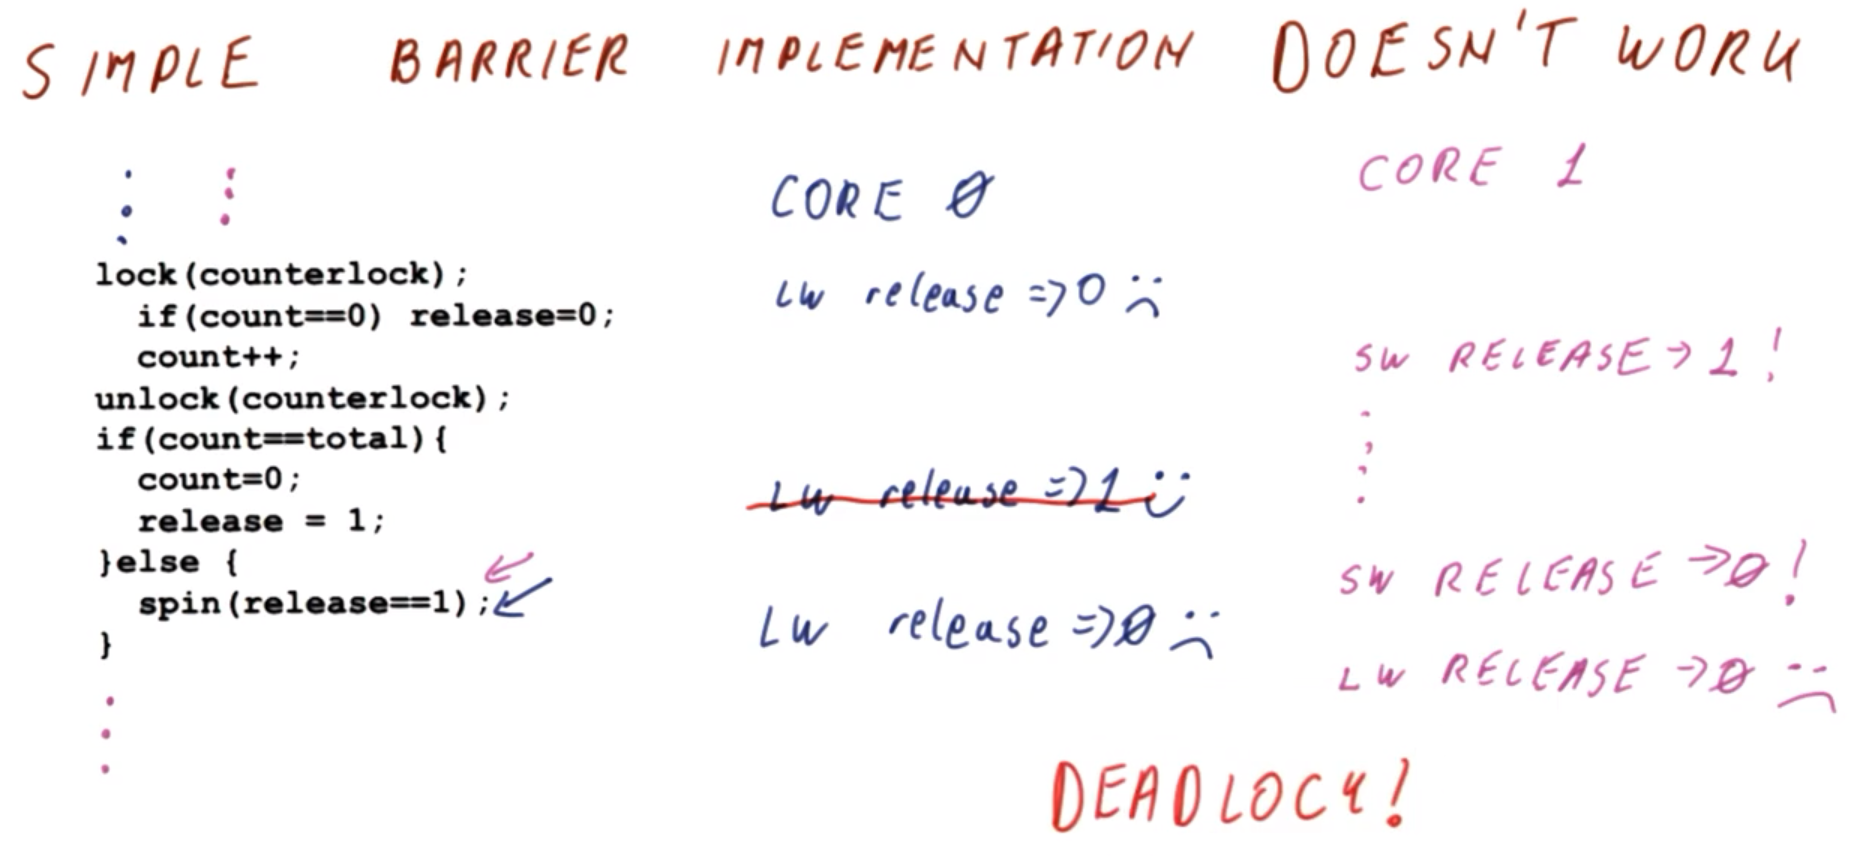 SIMPLE BARRIER IMPLEMENTATION DOESN'T WORK
CORE 0
CORE 1
lock(counterlock);
if(count==0) release=0;
count++;
unlock(counterlock);
if(count==total){
count=0;
release = 1;
}else {
spin(release==1);
}
LW release =>0
LW release =>1
LW release =>0
SW RELEASE → 1!
SW RELEASE → 0!
LW RELEASE → 0
DEADLOCK!